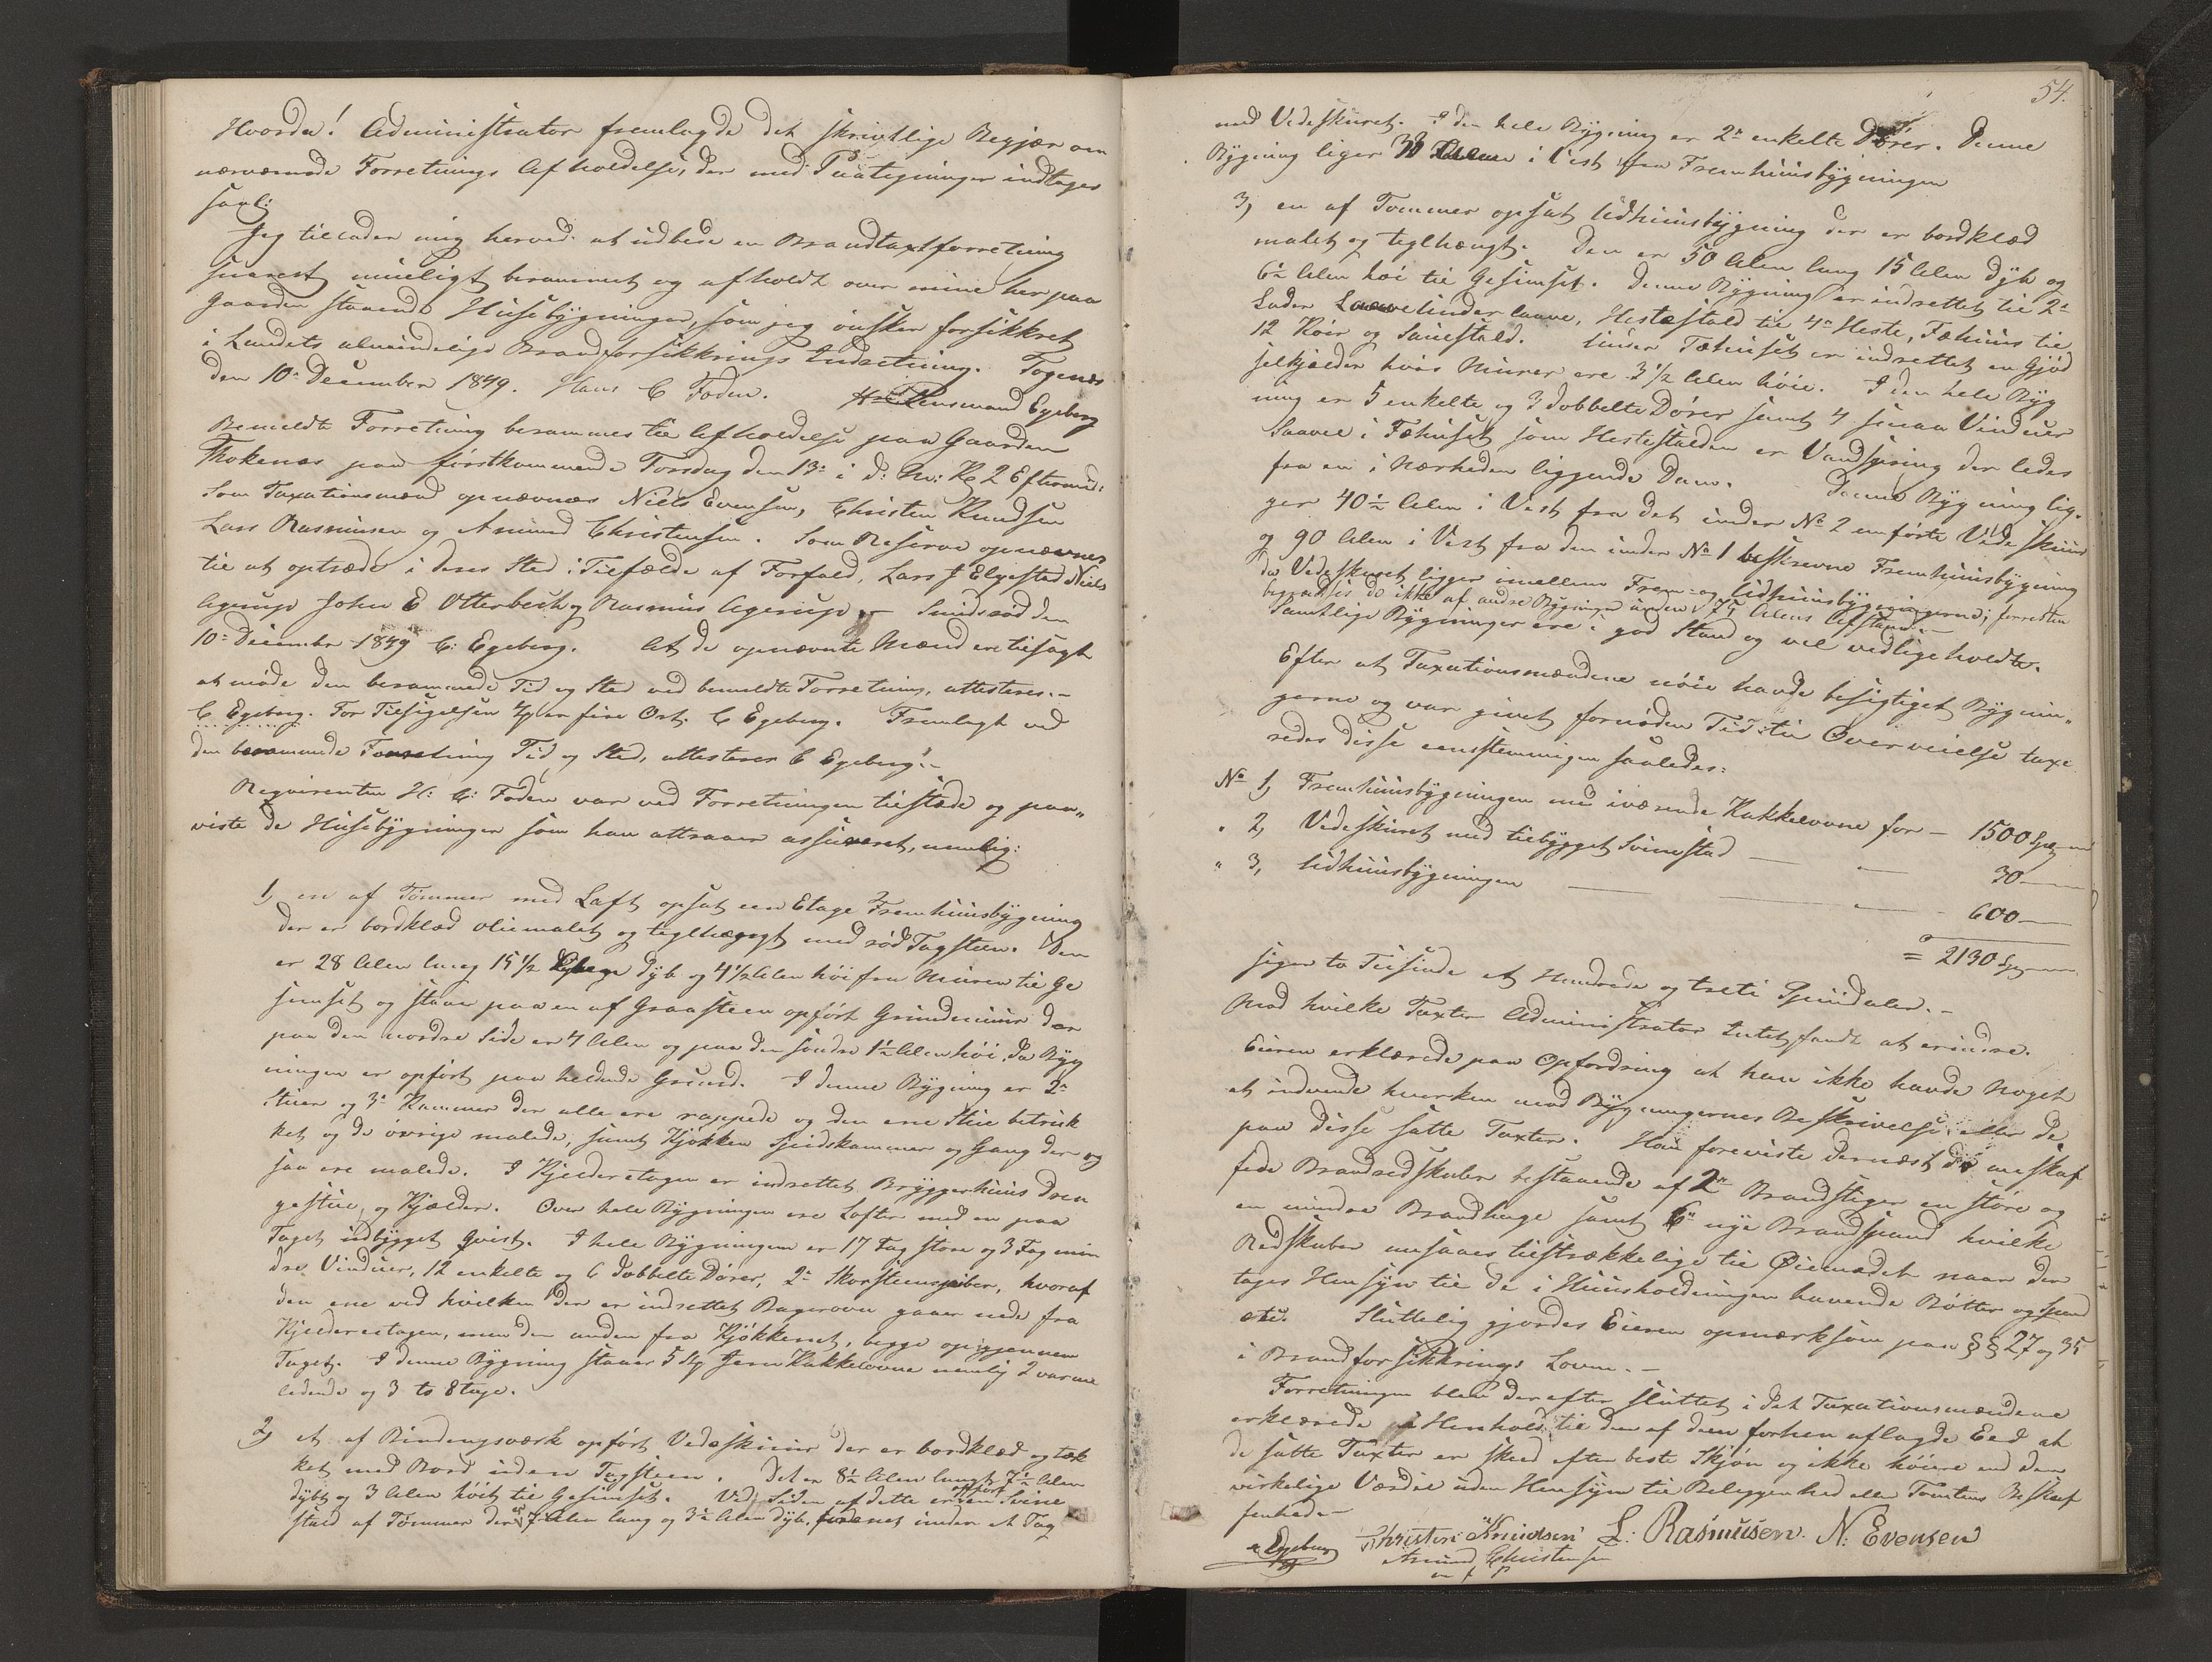 Hvorda! Administrator fremlagde det skriftlige Begjær om
nærværende Forretnings Afholdelse, der med Paategninger indtages
saal:
Jeg tillader mig herved at udbede en Brandtaxtforretning
snarest mueligt berammet og afholdt over mine her paa
Gaarden staaende Huusebygninger, som jeg ønsker forsikkret
i Landets almindelige Brandforsikkrings Indretning. Togenæs
den 10de December 1849. Hans C Foden. Lensmand Egeberg
Bemeldte Forretning berammes til Afholdelse paa Gaarden
Thokenæs paa førstkommende Torsdag den 13de i d: M: Kl 2 Eftermid:
Som Taxationsmænd opnævnes Niels Evensen, Christen Knudsen
Lars Rasmusen og Amund Christensen. Som Reserve opnævnes
til at optræde i deres Sted i Tilfælde af Forfald, Lars J Elgestad Niels
Agerup John E Otterbech og Rasmus Agerup. - Sundsød den
10de Decembr 1849 C: Egeberg. At de opnævnte Mænd ere tilsagt
at møde den berammede Tid og Sted ved bemeldte Forretning, attesteres. -
C Egeberg. For Tilsigelsen 4/ er fire Ort. C Egeberg. Fremlagt ved
den berammede Forretning Tid og Sted, attesterer C Egeberg. -
Reqvirenten H: C: Foden var ved Forretningen tilstæde og paa„
viste de Huusebygninger som han attraaer assureret, nemlig:
1, en af Tømmer med Laft opsat een Etage Fremhuusbygning
der er bordklæd oliemalet og teglhængt med rød Tagsteen. Den
er 28 Alen lang 15 1/2 dyb og 4 1/2 Alen høi fra Muren til Ge
simset og staaer paa en af Graasteen opført Grundmuur der
paa den nordre Side er 4 Alen og paa den søndre 1 1/2 Alen høi, da Byg
ningen er opført paa heldende Grund. I denne Bygning er 2de
Stuer og 3de Kammer der alle ere rappede og den ene Stue betruk
ket og de øvrige malede, samt Kjøkken Spiidskammer og Gang der og
saa ere malede. I Kjelderetagen er indrettet Bryggerhuus Dren
gestue og Kjælder. Over hele Bygningen ere Lofter med en paa
Taget udbygget Qvist. I hele Bygningen er 17 Fag store og 3 Fag min
dre Vinduer, 12 enkelte og 6 dobbelte Døre, 2de Skorsteenspiber, hvoraf
den ene ved hvilken der er indrettet Bagerovn gaaer nede fra
Kjelderetagen, men den anden fra Kjøkkenet, begge op igjennem
Taget. I denne Bygning staaer 5 Stk Jern Kakkelovne nemlig 2 varme
ledende og 3 to Etage.
2, et af Bindingsværk opført Vedeskuur der er bordklæd og tæk
ket med Bord under Tagsteen. Det er 8 1/2 Alen langt 7 1/2 Alen
dybt og 3 Alen høit til Gesimset. Ved Siden af dette er opført en Svine
stald af Tømmer der er 7 Alen lang og 3 1/2 Alen dyb, forenet under et Tag
54.
med Vedeskuret. I den hele Bygning er 2de enkelte Dører. Denne
Bygning liger 30 Alen i Vest fra Fremhuusbygningen
3, en af Tømmer opsat Udhuusbygning der er bordklæd
malet og teglhængt. Den er 50 Alen lang 15 Alen dyb og
6 1/2 Alen høi til Gesimset. Denne Bygning er indrettet til 2de
Lader Laave Underlaave, Hestestald til 4de Heste, Fæhuus til
12 Køer og Sauestald. Under Fæhuset er indrettet en Gjød
selkjælder hvis Murer ere 3 1/2 Alen høie. I den hele Byg
ning er 5 enkelte og 3 dobbelte Dører samt 4 smaa Vinduer
Saavel i Fæhuset som Hestestalden er Vandspring der ledes
fra en i Nærheden liggende Dam. Denne Bygning lig„
ger 40 1/2 Alen i Vest fra det under No 2 anførte Vedeskuur
og 90 Alen i Vest fra den under No 1 beskrevne Fremhuusbygning
da Vedeskuret ligger imellem Frem- og Udhuusbygningerne; forresten
begrændses de ikke af andre Bygninger under 75 Alens Afstand. -
Samtlige Bygninger ere i god Stand og vel vedligeholdte.
Efter at Taxationsmændene nøie havde besigtiget Bygnin„
gerne og var givet fornøden Tid til Overveielse taxe
redes disse eenstemmigen saaledes:
No 1, Fremhuusbygningen med iværende Kakkelovne for - 1500 Spd
" 2, Vedeskuret med tilbygget Svinestald - 30
" 3, Udhuusbygningen - 600
= 2130 Spd
siger to Tusinde et Hundrede og treti Speciedaler. -
Mod hvilke Taxter Administrator Intet fandt at erindre.
Eieren erklærede paa Opfordring at han ikke havde noget
at indvende hverken mod Bygningernes Beskrivelse eller de
paa disse satte Taxter. Han foreviste dernæst de anskaf
fede Brandredskaber bestaaende af 2de Brandstiger en større og
en mindre Brandhage samt 6 nye Brandspand hvilke
Redskaber ansaaes tilstrækkelige til Øiemedet naar der
tages Hensyn til de i Huusholdningen havende Bøtter og Spand
etc. Sluttelig gjordes Eieren opmærksom paa §§ 27 og 35
i Brandforsikkrings Loven. -
Forretningen blev derefter sluttet i det Taxationsmændene
erklærede i Henhold til den af dem forhen aflagde Eed at
de satte Taxter er skeed efter beste Skjøn og ikke høiere end den
virkelige Værdie uden Hensyn til Beliggenhed eller Tomtens Beskaf
fenhed -
C Egeberg Christen Knudsen L: Rasmusen. N: Evensen
Amund Christensen
m f P